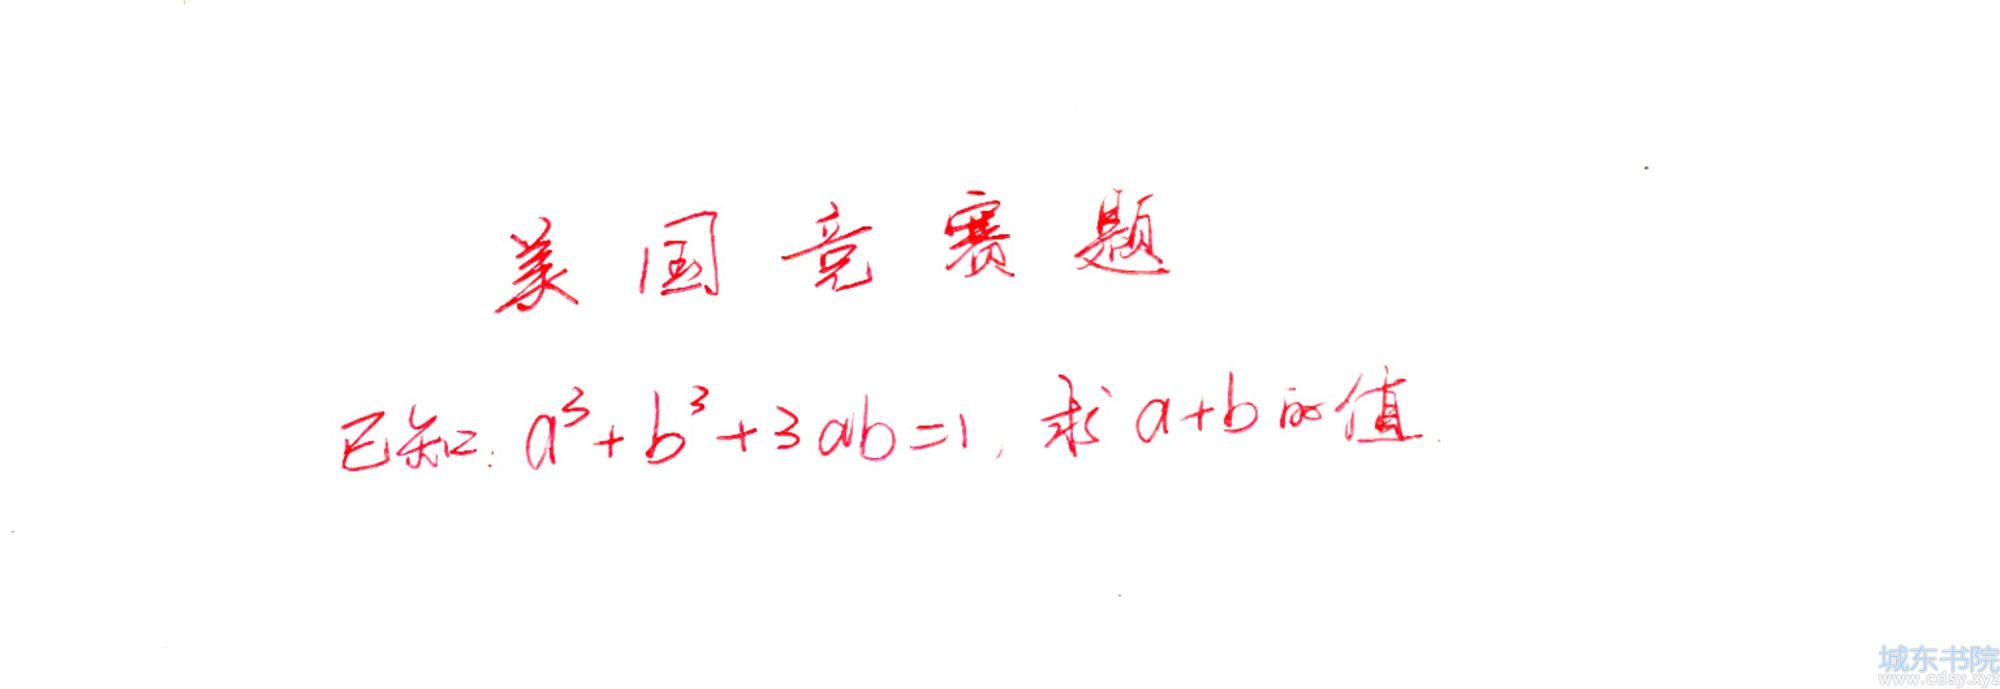 美国竞赛题
已知: a³+b³+3ab=1, 求 a+b 的值.
城东书院
www.cdsy.xyz